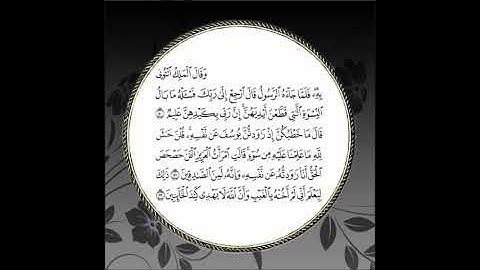 وَقَالَ ٱلْمَلِكُ ٱئْتُونِى
بِهِۦ ۖ فَلَمَّا جَآءَهُ ٱلرَّسُولُ قَالَ ٱرْجِعْ إِلَىٰ رَبِّكَ فَسْـَٔلْهُ مَا بَالُ
ٱلنِّسْوَةِ ٱلَّٰتِى قَطَّعْنَ أَيْدِيَهُنَّ ۚ إِنَّ رَبِّى بِكَيْدِهِنَّ عَلِيمٌ ۝٥٠
قَالَ مَا خَطْبُكُنَّ إِذْ رَٰوَدتُّنَّ يُوسُفَ عَن نَّفْسِهِۦ ۚ قُلْنَ حَٰشَ
لِلَّهِ مَا عَلِمْنَا عَلَيْهِ مِن سُوٓءٍ ۚ قَالَتِ ٱمْرَأَتُ ٱلْعَزِيزِ ٱلْـَٰٔنَ حَصْحَصَ
ٱلْحَقُّ أَنَا۠ رَٰوَدتُّهُۥ عَن نَّفْسِهِۦ وَإِنَّهُۥ لَمِنَ ٱلصَّٰدِقِينَ ۝٥١ ذَٰلِكَ
لِيَعْلَمَ أَنِّى لَمْ أَخُنْهُ بِٱلْغَيْبِ وَأَنَّ ٱللَّهَ لَا يَهْدِى كَيْدَ ٱلْخَآئِنِينَ ۝٥٢